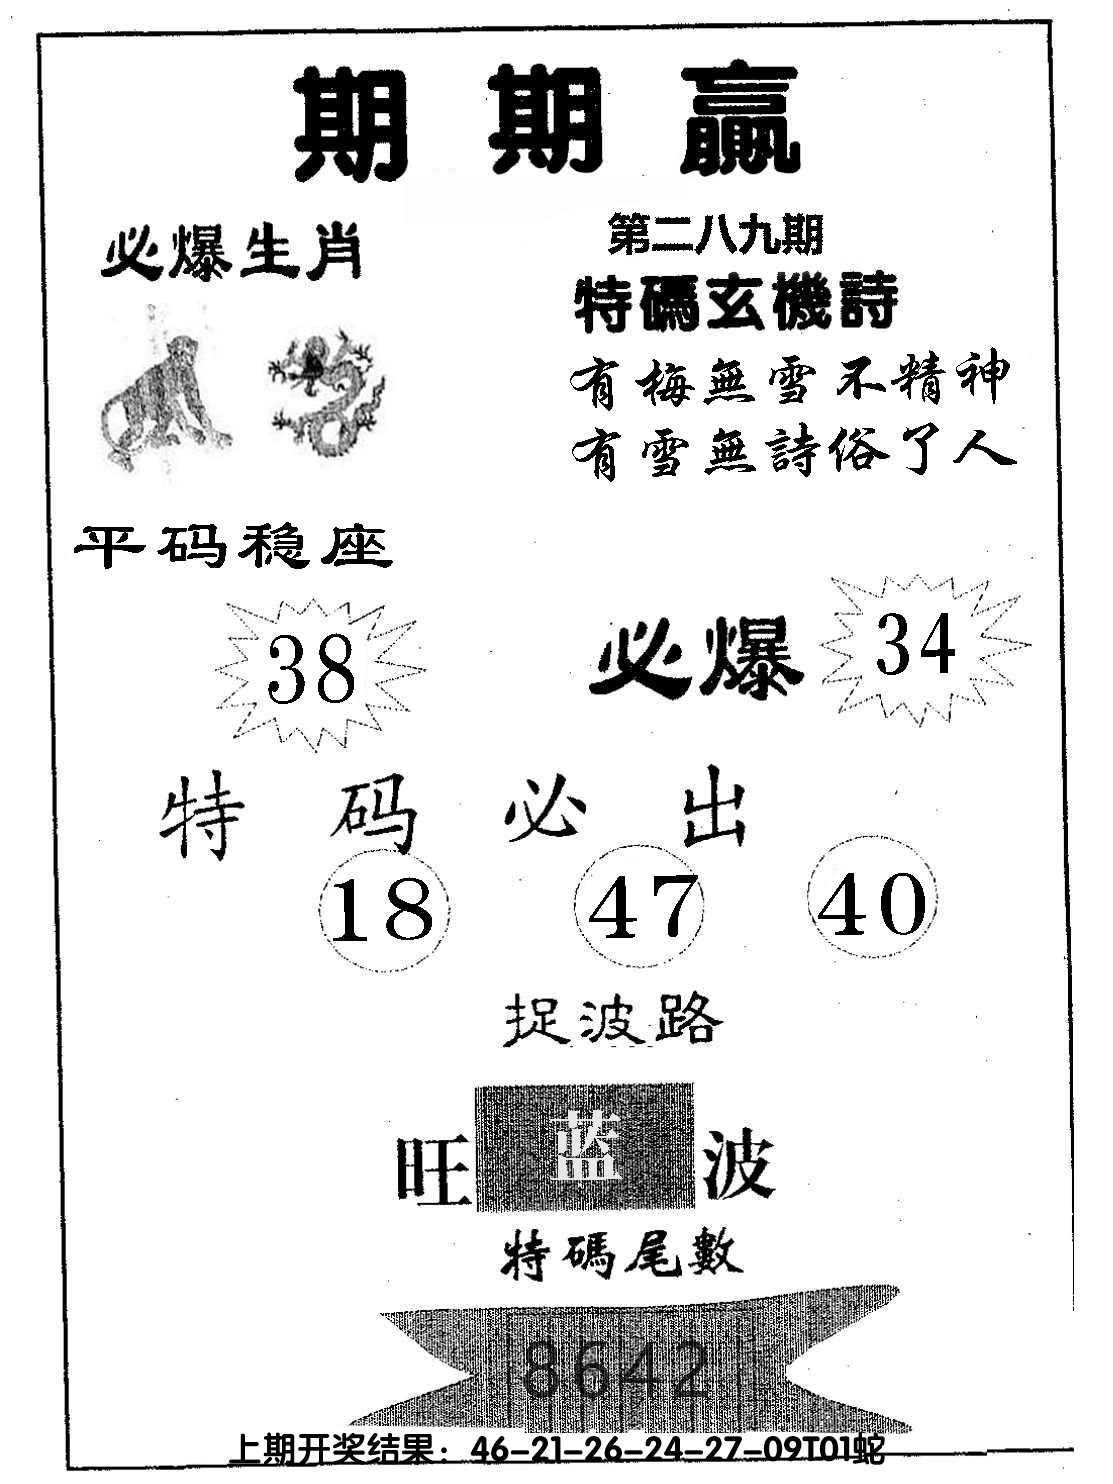 期期贏
必爆生肖
第二八九期
特碼玄機詩
有梅無雪不精神
有雪無詩俗了人
平码稳座
38
必爆 34
特码必出
18 47 40
捉波路
旺 蓝 波
特碼尾數
8642
上期开奖结果：46-21-26-24-27-09T01蛇